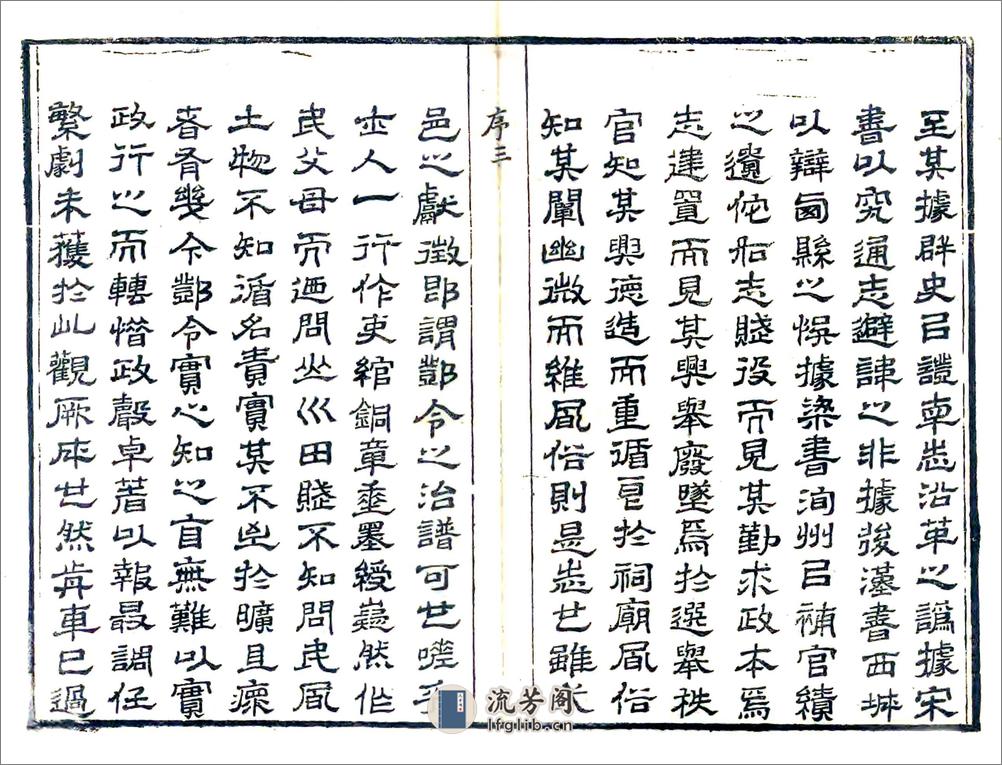 至其據群史㠯證志沿革之譌據宋
書以究通志避諱之非據後漢書西
以辯縣之悮據梁書洵州㠯補官績
之遺佗如志賦役而見其勤求政本焉
志建置而見其興舉廢墜焉於選舉秩
官知其興德造而重循良於祠廟風俗
知其闡幽微而維風俗則是志也雖
序三
邑之獻徵即謂酆令之治譜可也嗟乎
士人一行作吏綰銅章垂墨綬然作
民父母而迺問山川田賦不知問民風
土物不知循名責實其不至於曠且瘝
者有幾今酆令實心知之自無難以實
政行之而轉惜政聲卓著以報最調任
繁劇未獲於此觀厥成也然前車已過
流芳阁
lfglib.cn